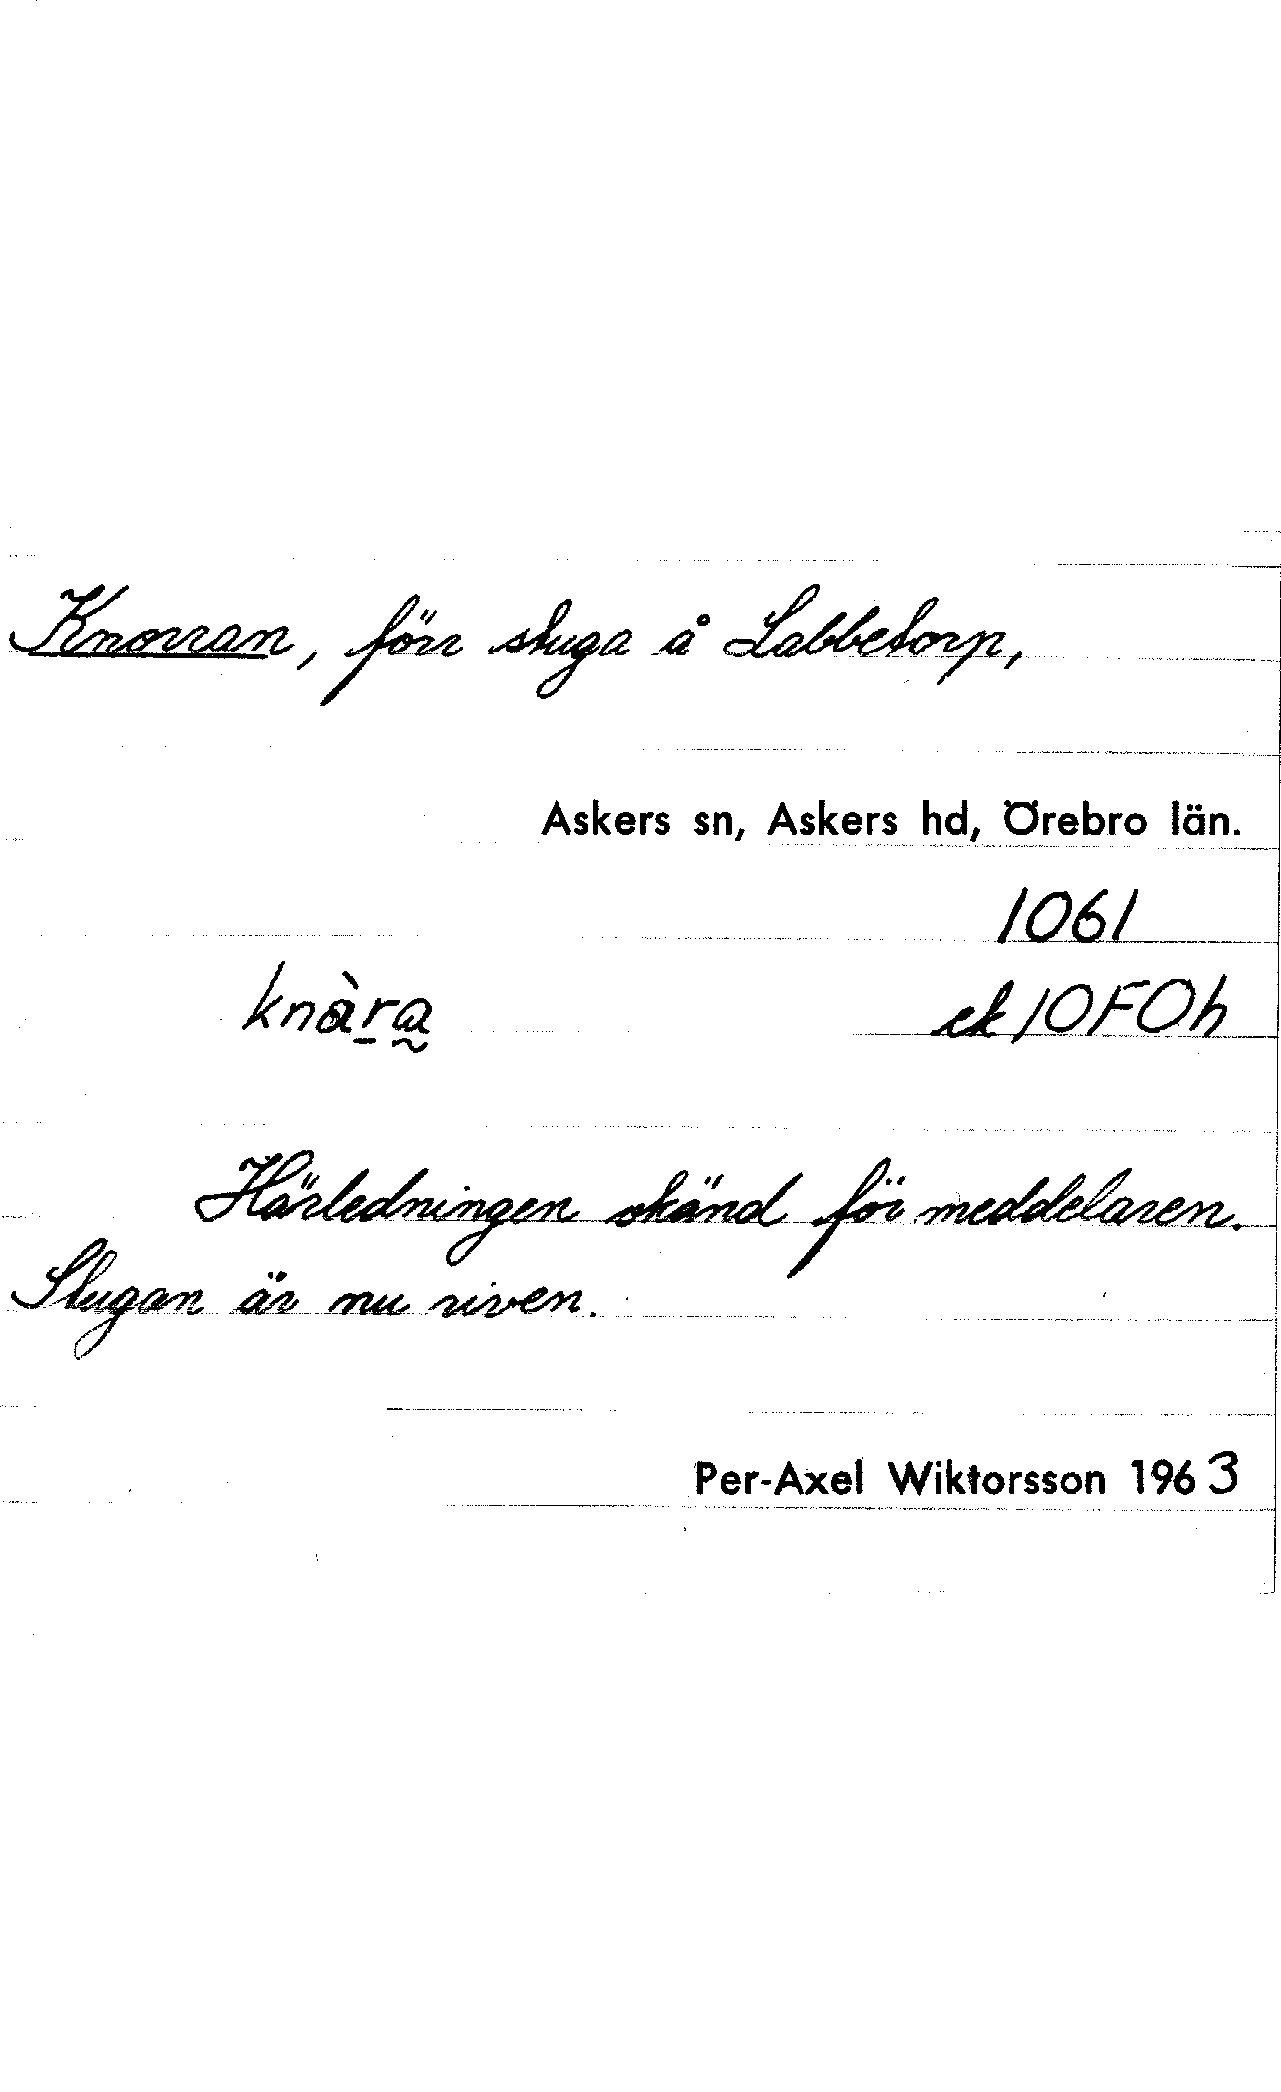 Knorran, förr stuga å Labbetorp,
Askers sn, Askers hd, Örebro län.
1061
knàra̰ ek 10F0h
Härledningen okänd för meddelaren.
Stugan är nu riven.
Per-Axel Wiktorsson 1963